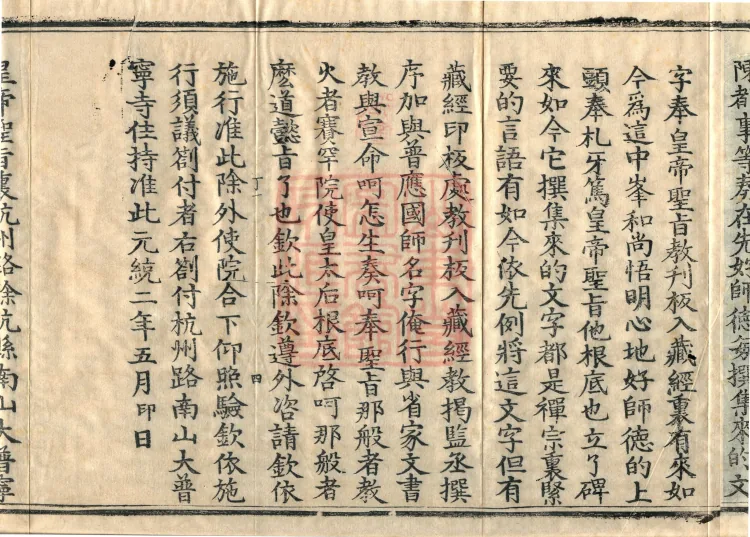 陳都事等奏在先好師德每撰集來的文
字奉 皇帝聖旨教刊板入藏經裏有來如
今爲這中峯和尚悟明心地好師德的上
頭奉札牙篤皇帝聖旨他根底也立了碑
來如今它撰集來的文字都是禪宗裏緊
要的言語有如今依先例將這文字但有
藏經印板處教刊板入藏經教揭監丞撰
序加與普應國師名字俺行與省家文書
教與宣命呵怎生奏呵奉聖旨那般者教
火者賽罕院使皇太后根底啓呵那般者
麽道懿旨了也欽此除欽遵外咨請欽依
施行准此除外使院合下仰照驗欽依施
行須議劄付者右劄付杭州路南山大普
寧寺住持准此元統二年五月印日
皇帝聖旨裏杭州路餘杭縣南山大普寧
四